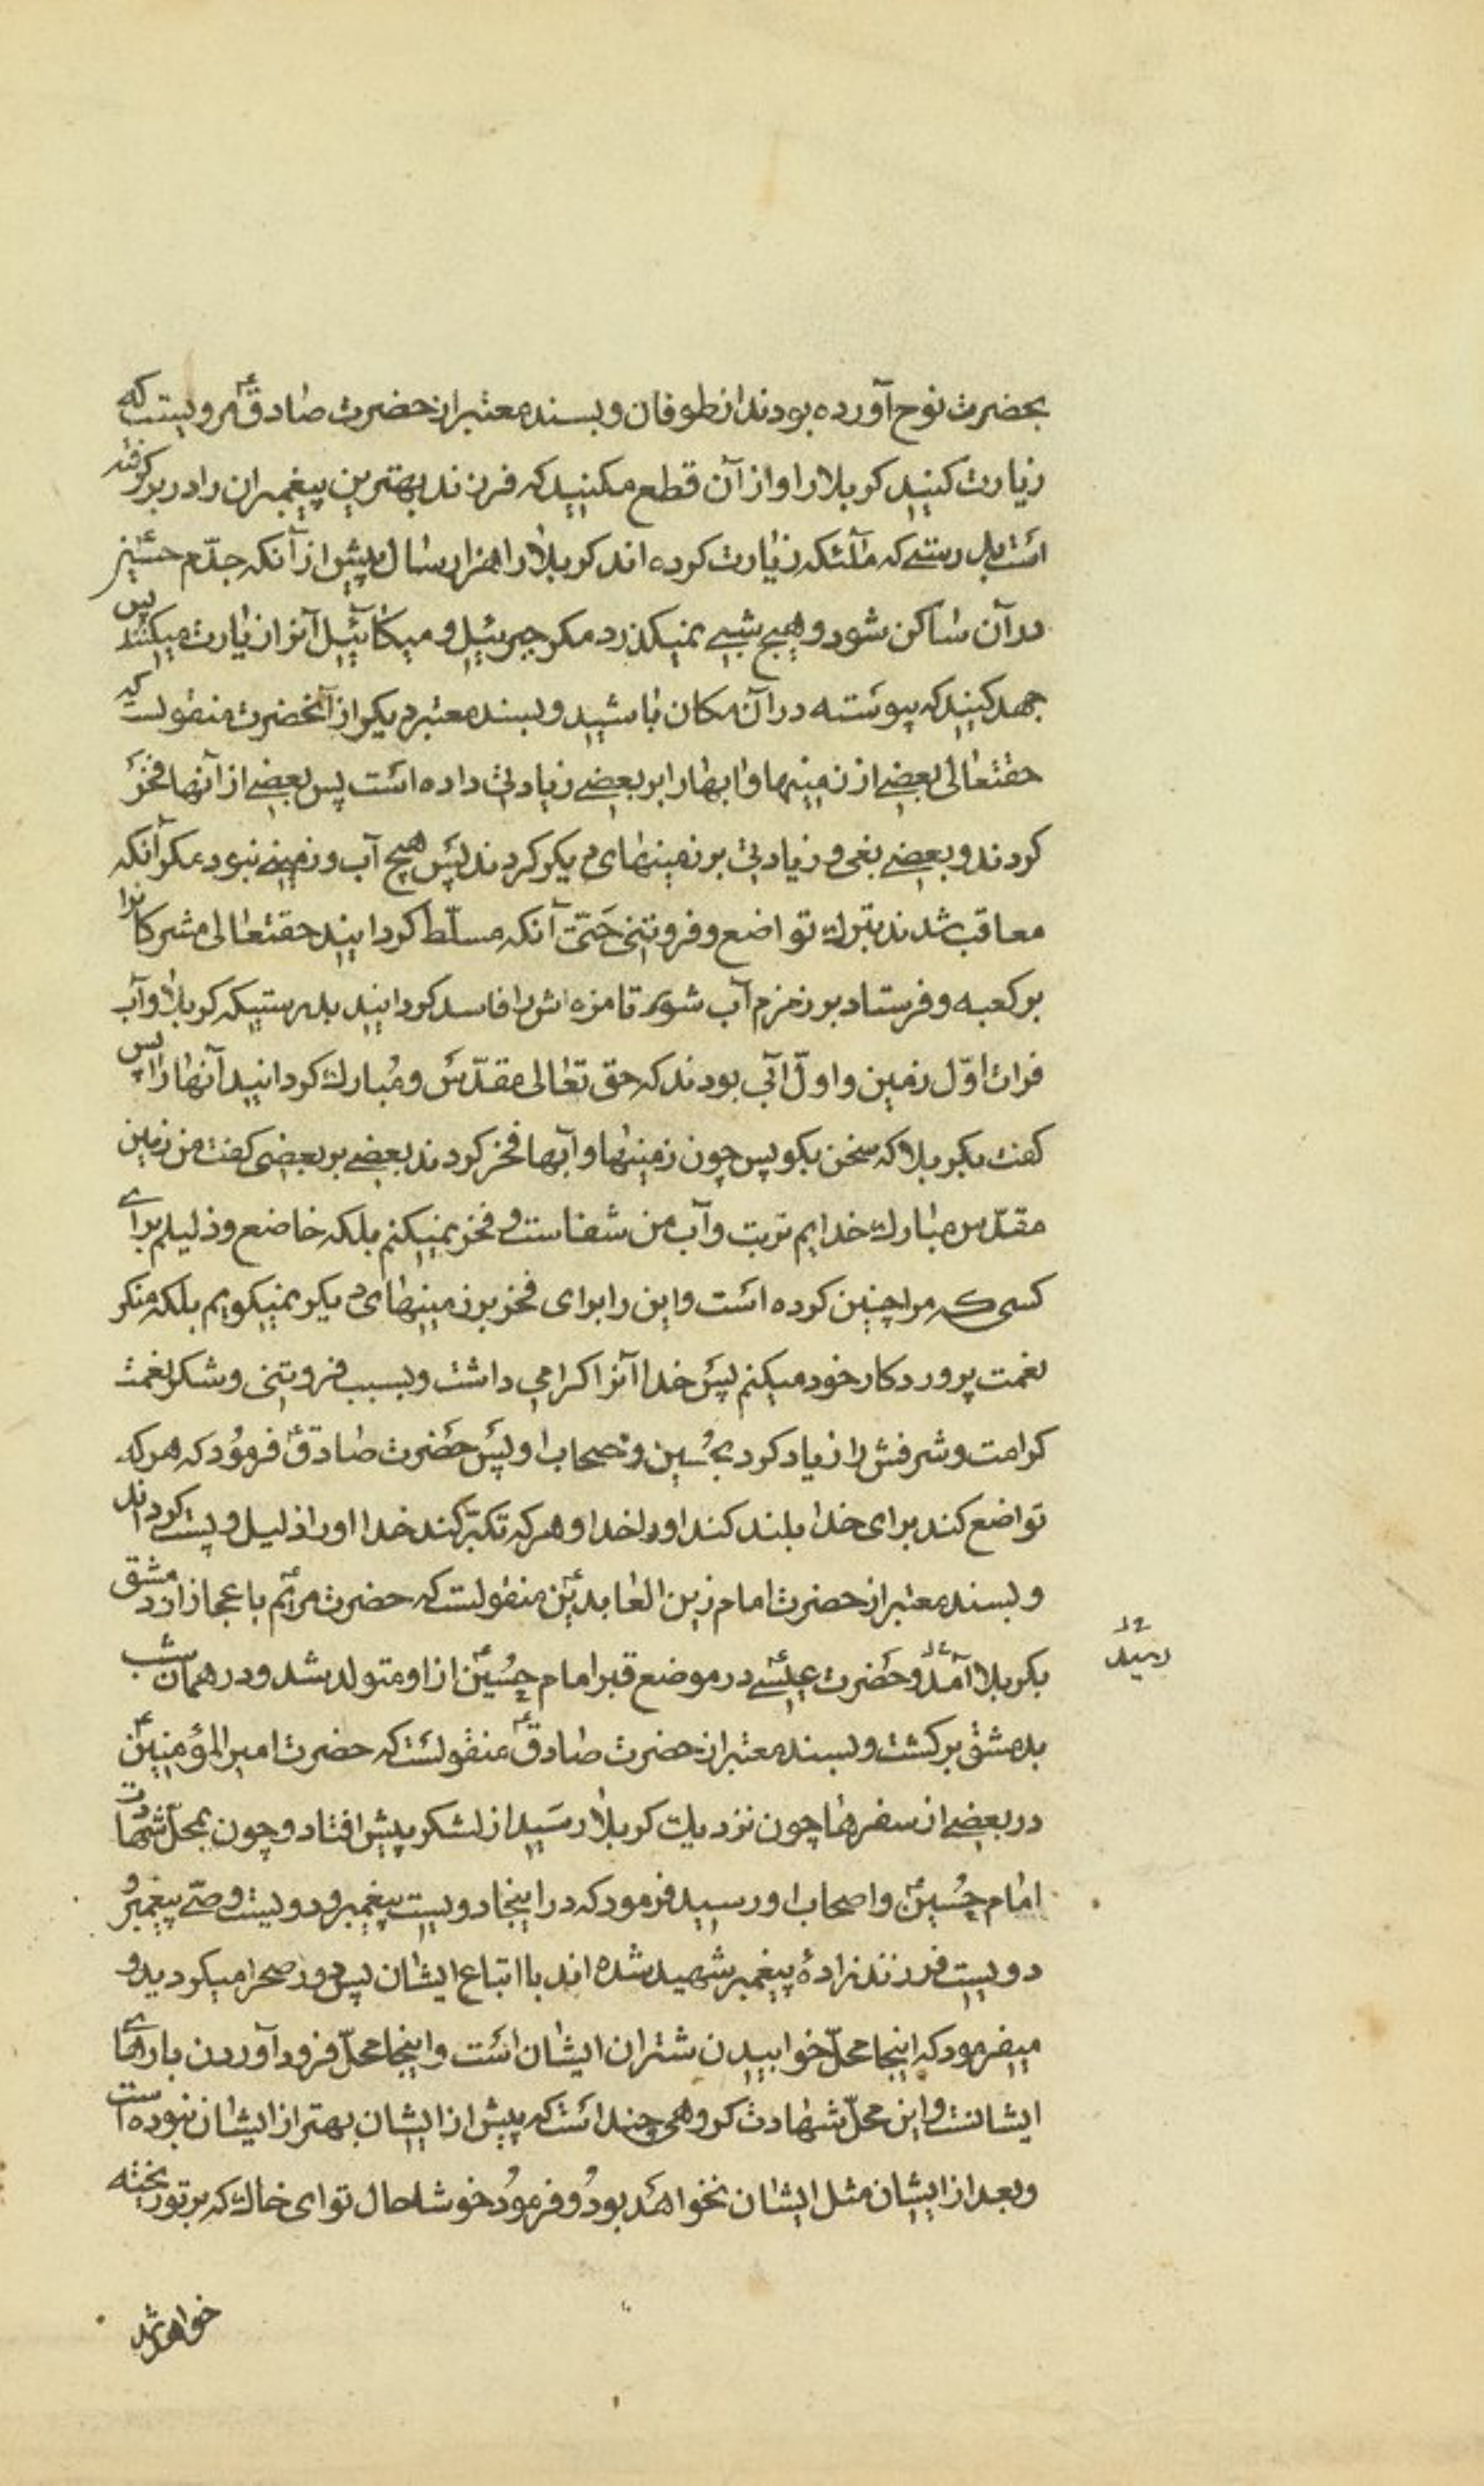 بحضرت نوح آورده بودند از طوفان و بسند معتبر از حضرت صادق ع مرویست که
زیارت کنید کربلا را و از آن قطع مکنید که فرزند بهترین پیغمبران را در بر کرفته
است بدرستے که ملآئکه زیارت کرده اند کربلا را هزار سال پیش از آنکه جدّم حسین ع
در آن ساکن شود و هیچ شبے نمیکذرد مکر جبرئیل و میکائیل آنرا زیارت میکنند پس
جهد کنید که پیوسته در آن مکان باشید و بسند معتبر دیکر از آنحضرت منقولست که
حقتعالی بعضے از زمینها و ابها را بر بعضے زیادتی داده است پس بعضے از آنها فخر
کردند و بعضے بغی و زیادتی بر زمینهای دیکر کردند پس هیچ آب و زمینے نبود مکر آنکه
معاقب شدند بترك تواضع و فروتنی حَتّی آنکه مسلّط کردانید حقتعالی مشرکانرا
بر کعبه و فرستاد بر زمزم آب شور تا مزه اش را فاسد کردانید بدرستیکه کربلا و آب
فرات اوّل زمین و اوّل آبی بودند که حق تعالی مقدّس و مُبارك کردانید آنها را پس
کفت بکربلا که سخن بکو پس چون زمینها و آبها فخر کردند بعضے بر بعضی کفت من زمین
مقدّس مبارك خدایم تربت و آب من شفاست و فخر نمیکنم بلکه خاضع و ذلیلم برای
کسی که مرا چنین کرده است و این را برای فخر بر زمینهای دیکر نمیکویم بلکه شکر
نعمت پروردکار خود میکنم پس خدا آنرا کرامی داشت و بسبب فروتنی و شکر نعمت
کرامت و شرفش را زیاد کرد بحُسین و صحاب او پس حضرت صادق ع فرمُود که هر که
تواضع کند برای خدا بلند کند او را خدا و هر که تکبّر کند خدا او را ذلیل و پست کرداند
و بسند معتبر از حضرت امام زین العابدین ع منقولست که حضرت مریم ع باعجاز از دمشق
بکربلا آمد و حضرت عیسے ع در موضع قبر امام حُسین ع از او متولد شد و در همان شب
رسید
بدمشق برکشت و بسند معتبر از حضرت صادق ع منقولست که حضرت امیر المؤمنین ع
در بعضے از سفرها چون نزدیك کربلا رسَید از لشکر پیش افتاد و چون بمحلّ شهادت
امام حُسین ع و اصحاب او رسید فرمود که در اینجا دویست پیغمبر و دویست وصّے پیغمبر و
دویست فرزند زادۀ پیغمبر شهید شده اند با اتباع ایشان پس در صحرا میکردید و
میفرمود که اینجا محلّ خوابیدن شتران ایشان است و اینجا محلّ فرود آوردن بارهای
ایشانست و این محلّ شهادت کروهی چند است که پیش از ایشان بهتر از ایشان نبوده است
و بعد از ایشان مثل ایشان نخواهَد بودُ و فرمُود خوشا حال تو ای خاك که بر تو ریخته
خواهد شد